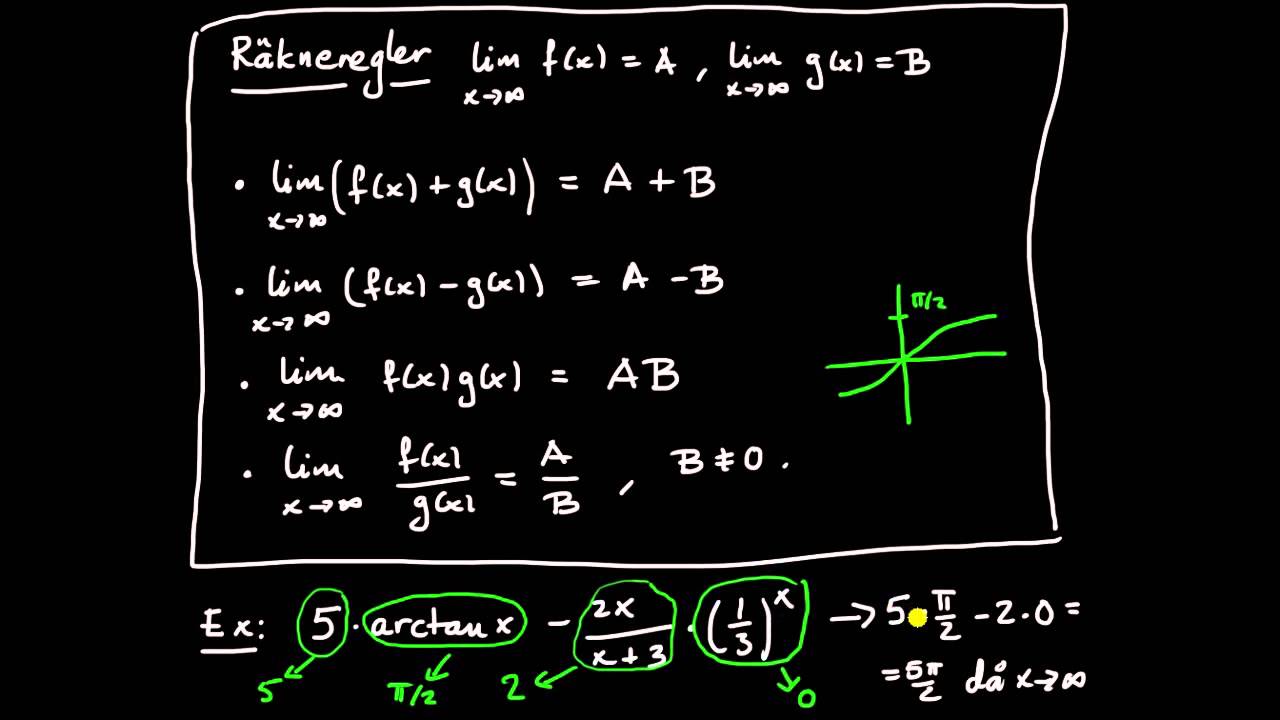 Räkneregler lim x→∞ f(x) = A , lim x→∞ g(x) = B
• lim x→∞ (f(x) + g(x)) = A + B
• lim x→∞ (f(x) - g(x)) = A - B
π/2
• lim x→∞ f(x)g(x) = AB
• lim x→∞ f(x)/g(x) = A/B , B ≠ 0 .
Ex: 5 · arctan x - 2x/(x+3) · (1/3)^x → 5 · π/2 - 2 · 0 =
5 π/2 2 0
= 5π/2 då x→∞